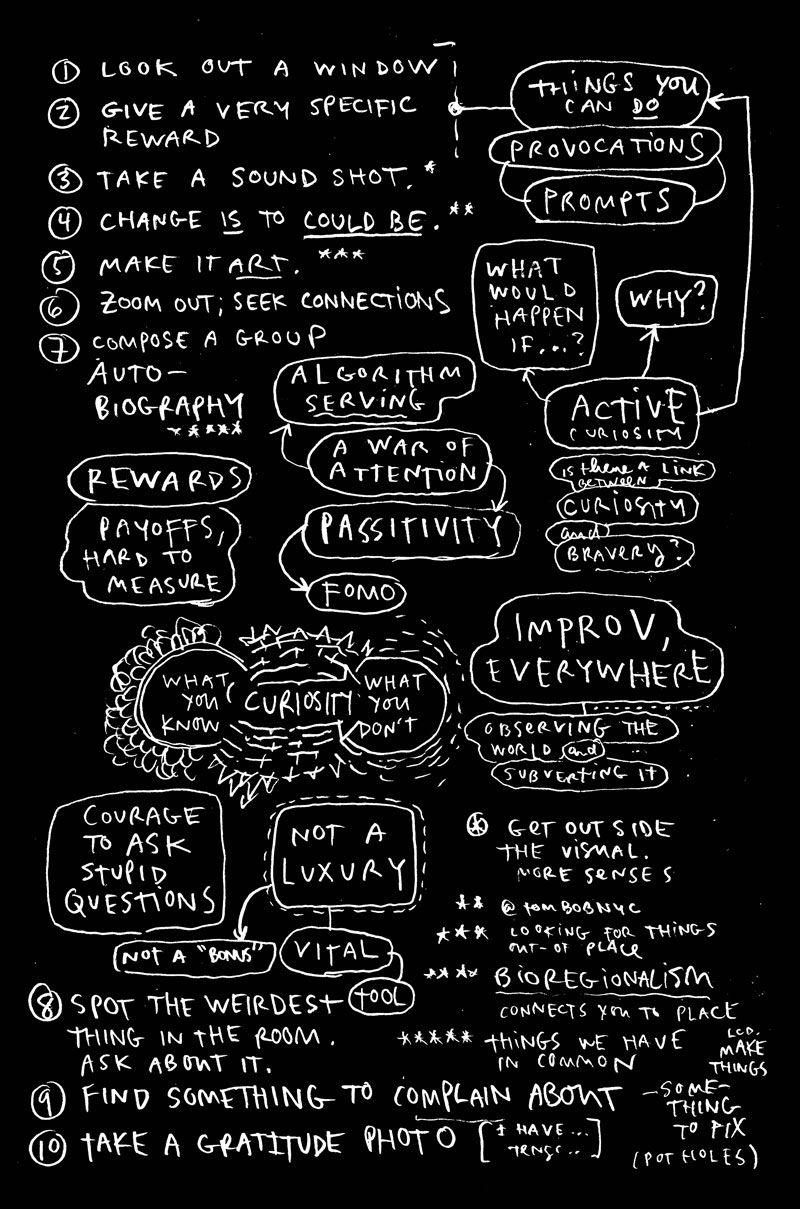 ① LOOK OUT A WINDOW
② GIVE A VERY SPECIFIC
REWARD
③ TAKE A SOUND SHOT. *
④ CHANGE IS TO COULD BE. **
⑤ MAKE IT ART. ***
⑥ ZOOM OUT; SEEK CONNECTIONS
⑦ COMPOSE A GROUP
AUTO-
BIOGRAPHY
*****
THINGS YOU
CAN DO
PROVOCATIONS
PROMPTS
WHAT
WOULD
HAPPEN
IF...?
WHY?
ACTIVE
CURIOSITY
IS there A LINK
BETWEEN
CURIOSITY
and
BRAVERY?
ALGORITHM
SERVING
A WAR OF
ATTENTION
PASSITIVITY
FOMO
REWARDS
PAYOFFS,
HARD TO
MEASURE
WHAT
YOU
KNOW
CURIOSITY
WHAT
YOU
DON'T
IMPROV,
EVERYWHERE
OBSERVING THE
WORLD and
SUBVERTING IT
COURAGE
TO ASK
STUPID
QUESTIONS
NOT A
LUXURY
NOT A "BONUS"
VITAL
TOOL
* GET OUT SIDE
THE VISUAL.
MORE SENSES
** @tomBOBNYC
*** LOOKING FOR THINGS
OUT-OF PLACE
**** BIOREGIONALISM
CONNECTS YOU TO PLACE
***** THINGS WE HAVE
IN COMMON
LCD.
MAKE
THINGS
⑧ SPOT THE WEIRDEST
THING IN THE ROOM.
ASK ABOUT IT.
⑨ FIND SOMETHING TO COMPLAIN ABOUT
—SOME-
THING
TO FIX
(POT HOLES)
⑩ TAKE A GRATITUDE PHOTO
[I HAVE...
...]